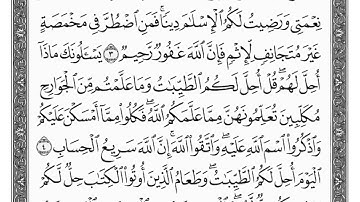 نِعْمَتِي وَرَضِيتُ لَكُمُ ٱلْإِسْلَٰمَ دِينًا ۚ فَمَنِ ٱضْطُرَّ فِي مَخْمَصَةٍ
غَيْرَ مُتَجَانِفٍ لِّإِثْمٍ ۙ فَإِنَّ ٱللَّهَ غَفُورٌ رَّحِيمٌ ٣ يَسْـَٔلُونَكَ مَاذَآ
أُحِلَّ لَهُمْ ۖ قُلْ أُحِلَّ لَكُمُ ٱلطَّيِّبَٰتُ ۙ وَمَا عَلَّمْتُم مِّنَ ٱلْجَوَارِحِ
مُكَلِّبِينَ تُعَلِّمُونَهُنَّ مِمَّا عَلَّمَكُمُ ٱللَّهُ ۖ فَكُلُوا۟ مِمَّآ أَمْسَكْنَ عَلَيْكُمْ
وَٱذْكُرُوا۟ ٱسْمَ ٱللَّهِ عَلَيْهِ ۖ وَٱتَّقُوا۟ ٱللَّهَ ۚ إِنَّ ٱللَّهَ سَرِيعُ ٱلْحِسَابِ ٤
ٱلْيَوْمَ أُحِلَّ لَكُمُ ٱلطَّيِّبَٰتُ ۖ وَطَعَامُ ٱلَّذِينَ أُوتُوا۟ ٱلْكِتَٰبَ حِلٌّ لَّكُمْ